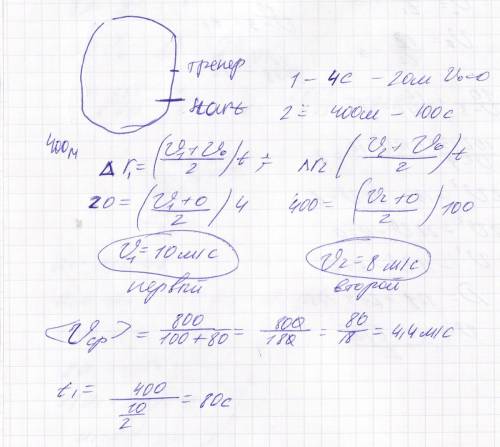 тренер
1 - 4с - 20м V₀=0
2 = 400м - 100с
400м
Δr₁ = ((V₁ + V₀)/2) t ; Δr₂ ((V₂ + V₀)/2) t
20 = ((V₁ + 0)/2) 4 400 = ((V₂ + 0)/2) 100
V₁ = 10 м/с V₂ = 8 м/с
первый второй
<Vср> = 800/(100 + 80) = 800/180 = 80/18 = 4,4 м/с
t₁ = 400/(10/2) = 80с